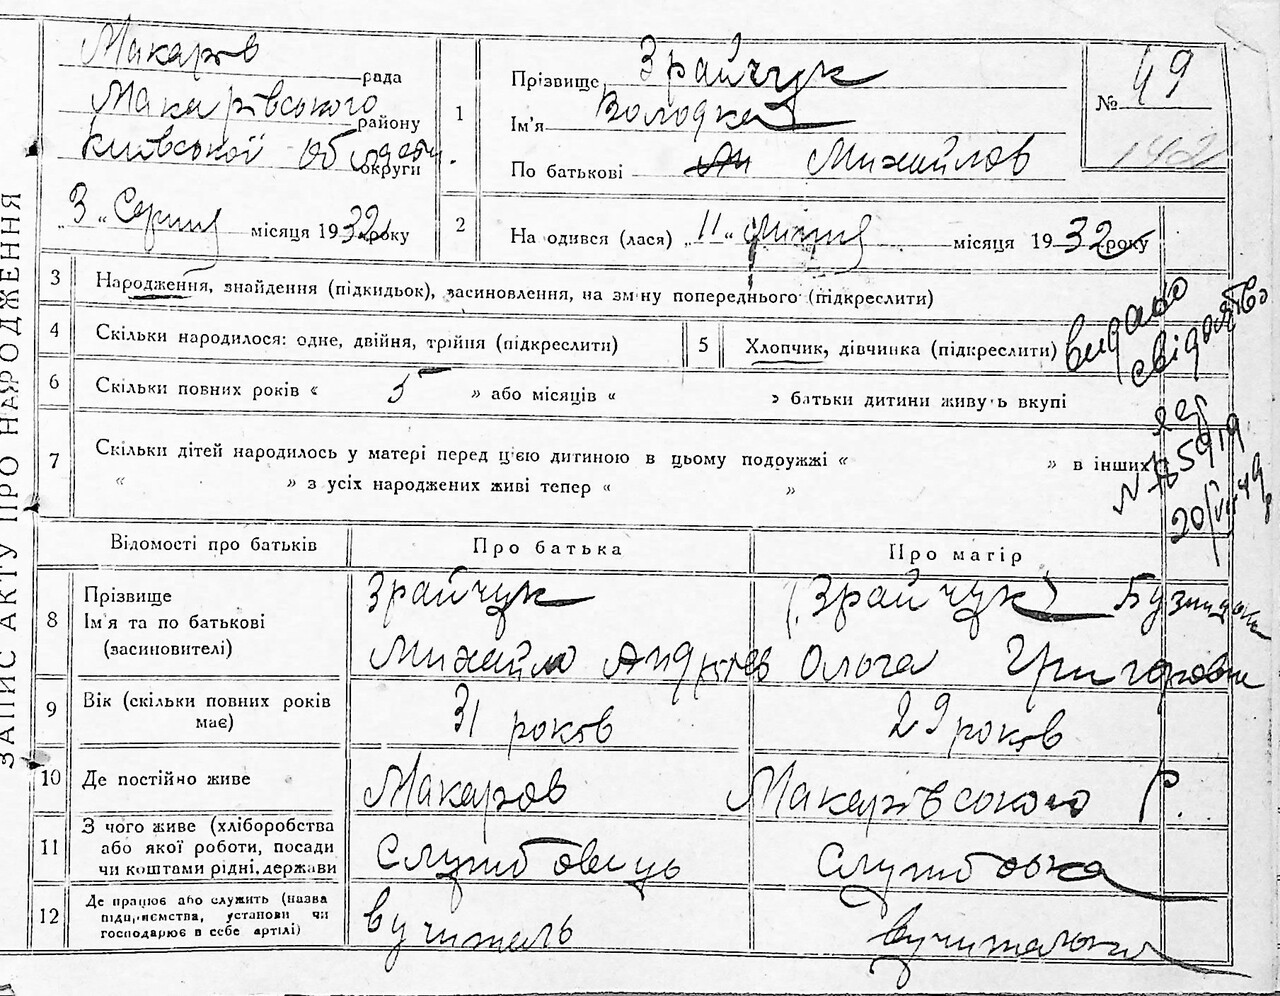 ЗАПИС АКТУ ПРО НАРОДЖЕННЯ
Макарів рада
Макарівського району
Київської області округи
„ 3 “ Серпня місяця 1932 року
1
Прізвище Зрайчук
Ім'я
По батькові Михайлов
№ 49
142
2
На одився (лася) „ 11 “ місяця 1932 року
3 Народження, знайдення (підкидьок), засиновлення, на зміну попереднього (підкреслити)
4 Скільки народилося: одне, двійня, трійня (підкреслити)
5 Хлопчик, дівчинка (підкреслити)
6 Скільки повних років « 5 » або місяців « » батьки дитини живуть вкупі
7 Скільки дітей народилось у матері перед цією дитиною в цьому подружжі « » в інших
« » з усіх народжених живі тепер « »
видано
свідоцтво
20/VII 49
Відомості про батьків Про батька Про матір
8 Прізвище
Ім'я та по батькові
(засиновителі)
Зрайчук
Михайло Андріїв
(Зрайчук)
Ольга Григоровна
9 Вік (скільки повних років
має)
31 років
29 років
10 Де постійно живе Макарів Макарівського р.
11 З чого живе (хліборобства
або якої роботи, посади
чи коштами рідні, держави
Службовець
Службовка
12 Де працює або служить (назва
підприємства, установи чи
господарює в себе артілі)
вучитель
вучителька